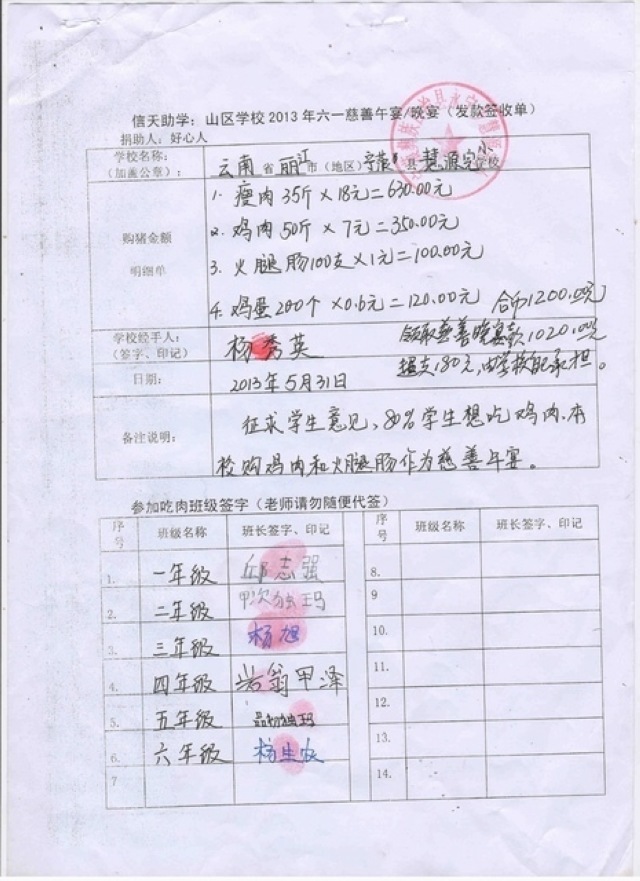 信天助学：山区学校2013年六一慈善午宴/晚宴（发款签收单）
捐助人：好心人
学校名称：
（加盖公章）：
云南省丽江市（地区）宁蒗县慧源完小学校
购猪金额
明细单
1. 瘦肉35斤×18元=630.00元
2. 鸡肉50斤×7元=350.00元
3. 火腿肠100支×1元=100.00元
4. 鸡蛋200个×0.6元=120.00元 合币1200.00元
学校经手人：
（签字、印记）
杨秀英
领取慈善晚宴款1020.00元
超支180元,由学校承担。
日期：
2013年5月31日
备注说明：
征求学生意见、80%学生想吃鸡肉、本
校购鸡肉和火腿肠作为慈善午宴。
参加吃肉班级签字（老师请勿随便代签）
序号 班级名称 班长签字、印记 序号 班级名称 班长签字、印记
1. 一年级 邱志强 8.
2. 二年级 甲次独玛 9
3. 三年级 杨旭 10.
4. 四年级 岩翁甲泽 11.
5. 五年级 品初独玛 12.
6. 六年级 杨生农 13.
7 14.